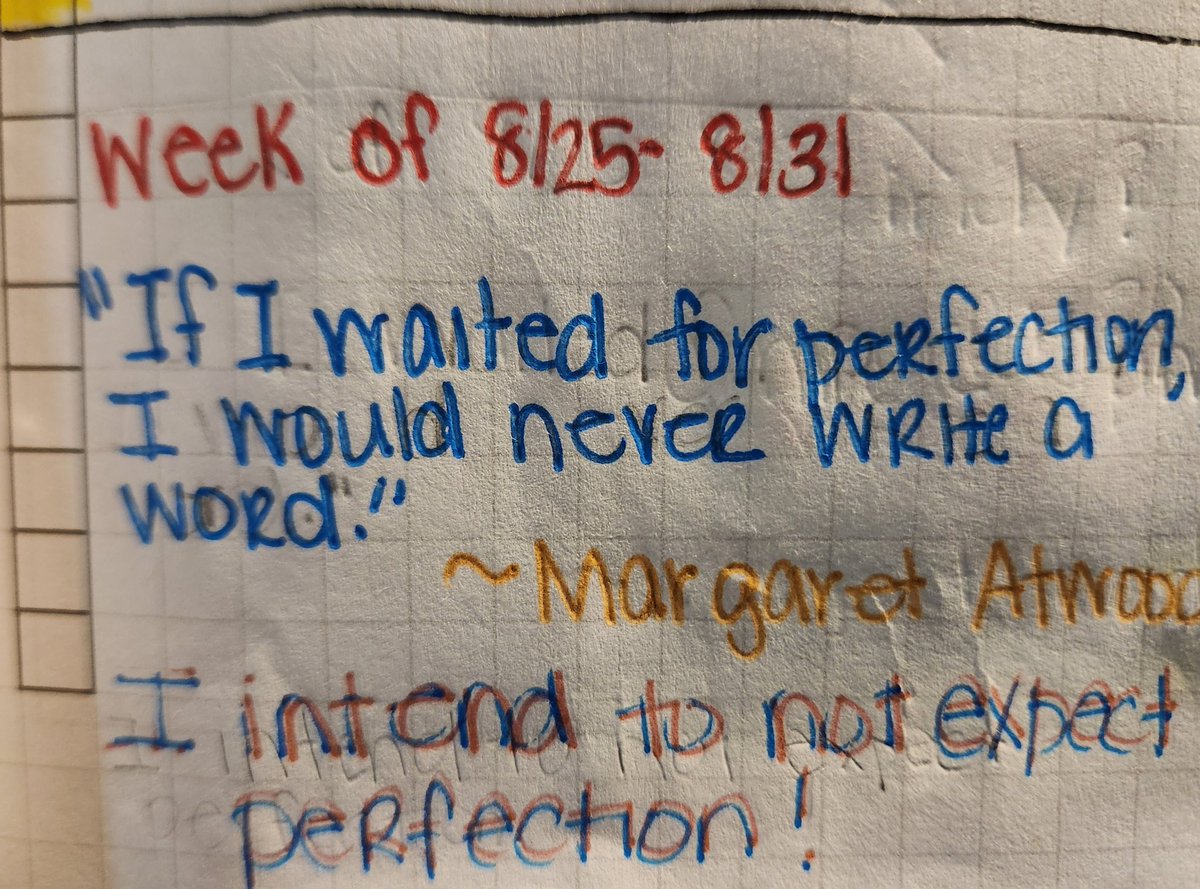 Week of 8/25- 8/31
"If I waited for perfection,
I would never write a
word."
~Margaret Atwood
I intend to not expect
perfection!